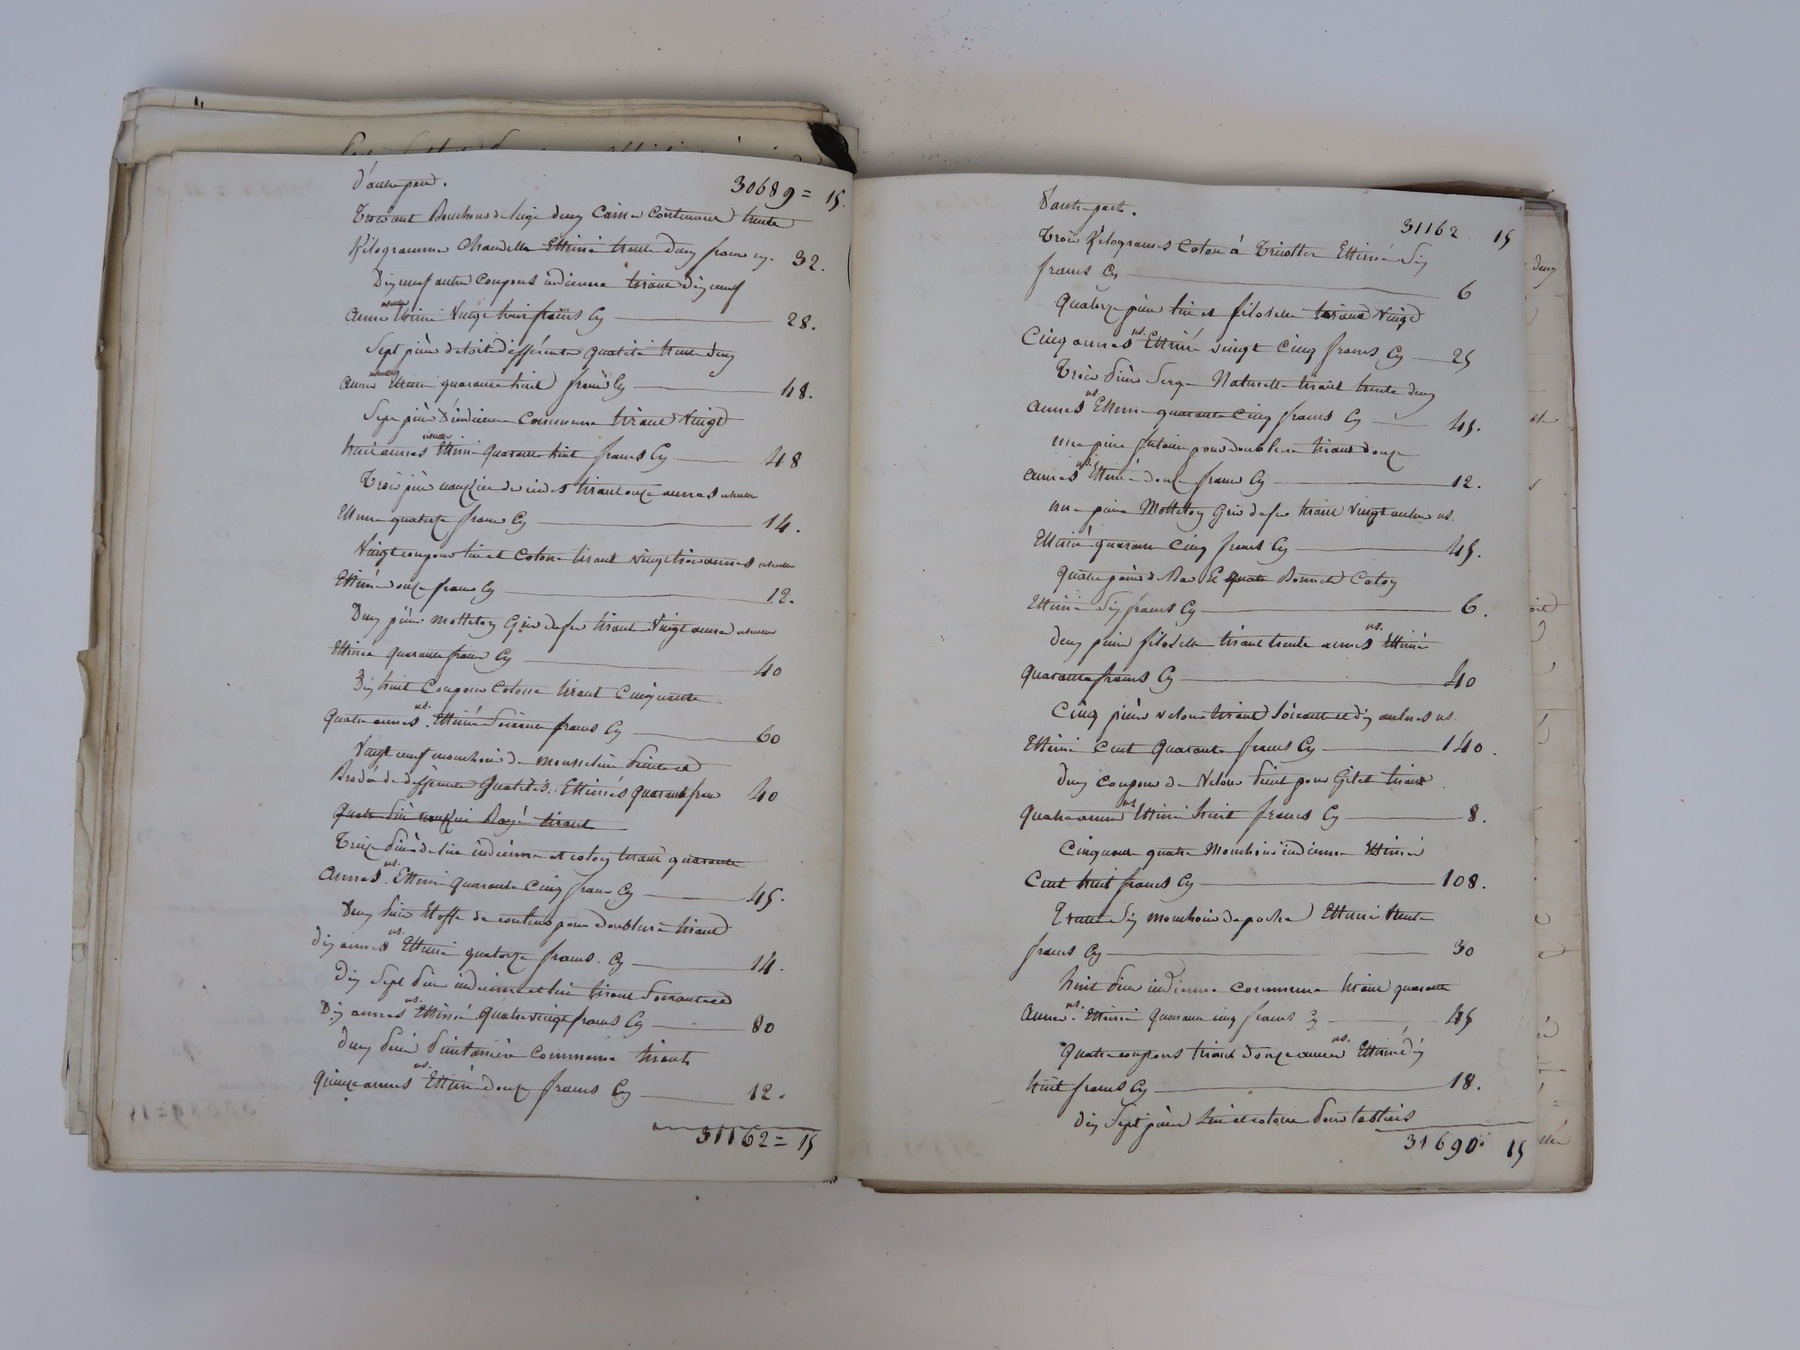 d'autre part. 30689 = 15.
trois cent Bouchons de liege deux Caisse Contenant trente
Kilogramme Chandelle Estimé trente deux francs cy. 32.
Dix neuf autre Coupons indienne tirant dix neuf
aune usuelle Estimé Vingt huit francs Cy 28.
Sept pièce de toile différente qualité trente deux
aune usuelles Estimé quarante huit francs Cy 48.
Sept pièce d'indienne Commune tirant Vingt
huit aunes usuelle Estimé Quarante huit francs Cy 48
Trois pièce nankin des indes tirant onze aunes usuelle
Estimé quatorze francs Cy 14.
Vingt coupons lin et Cotone tirant vingt trois aunes usuelle
Estimé douze francs Cy 12.
Deux pièce Molleton Gris de fer tirant Vingt aunes usuelles
Estimé Quarante francs Cy 40
Dix huit Coupons Cotone tirant Cinquante
Quatre aunes us. Estimé Soixante francs Cy 60
Vingt neuf mouchoir de mousseline peinte et
Brodée de différente Qualités. Estimés quarante fran 40
Quatre piè nankin Rayé tirant
Treize pièce de lin indienne et coton tirant quarante
Aunes us. Estimé quarante Cinq franc Cy 45.
Deux pièce Etoffe de coutens pour doublure tirant
dix aunes us. Estimé quatorze francs. Cy 14.
dix Sept pièce indienne et lin tirant Soixante et
Dix aunes us. Estimé Quatre vingt francs Cy 80
deux pièce printanière Commune tirant
Quinze aunes us. Estimé douze francs Cy 12.
31162 = 15
D'autre part. 31162 15
Trois Kilogrames Coton à Tricotter Estimé Six
francs Cy 6
Quatorze pièce lin et filoselle tirant Vingt
Cinq aunes us. Estimé vingt Cinq francs Cy 25
Trois pièce Serge Naturelle tirant trente deux
Aunes us Estimé quarante Cinq francs Cy 45.
une pièce futaine pour doublure tirant douze
aunes us. Estimé douze francs Cy 12.
une pièce Molleton Gris de fer tirant Vingt aulnes us.
Estimé quarante Cinq francs Cy 45.
Quatre paire de Bas Et quatre Bonnets Coton
Estimé Six francs Cy 6.
deux pièce filoselle tirant trente aunes us. Estimé
Quarante francs Cy 40
Cinq pièce velour tirant Soixante et dix aulnes us.
Estimé Cent Quarante francs Cy 140.
deux coupons de Velour peint pour Gilet tirant
Quatre aunes us Estimé huit francs Cy 8.
Cinquante quatre Mouchoirs indienne Estimé
Cent huit francs Cy 108.
Trente Six mouchoirs de poche Estimé trente
francs Cy 30
huit pièce indienne Commune tirant quarante
Aunes us. Estimé Quarante cinq francs Cy 45
Quatre coupons tirant douze aunes us. Estimé dix
huit francs Cy 18.
dix Sept pièce Lin et cotone pour tabliers
31690 15